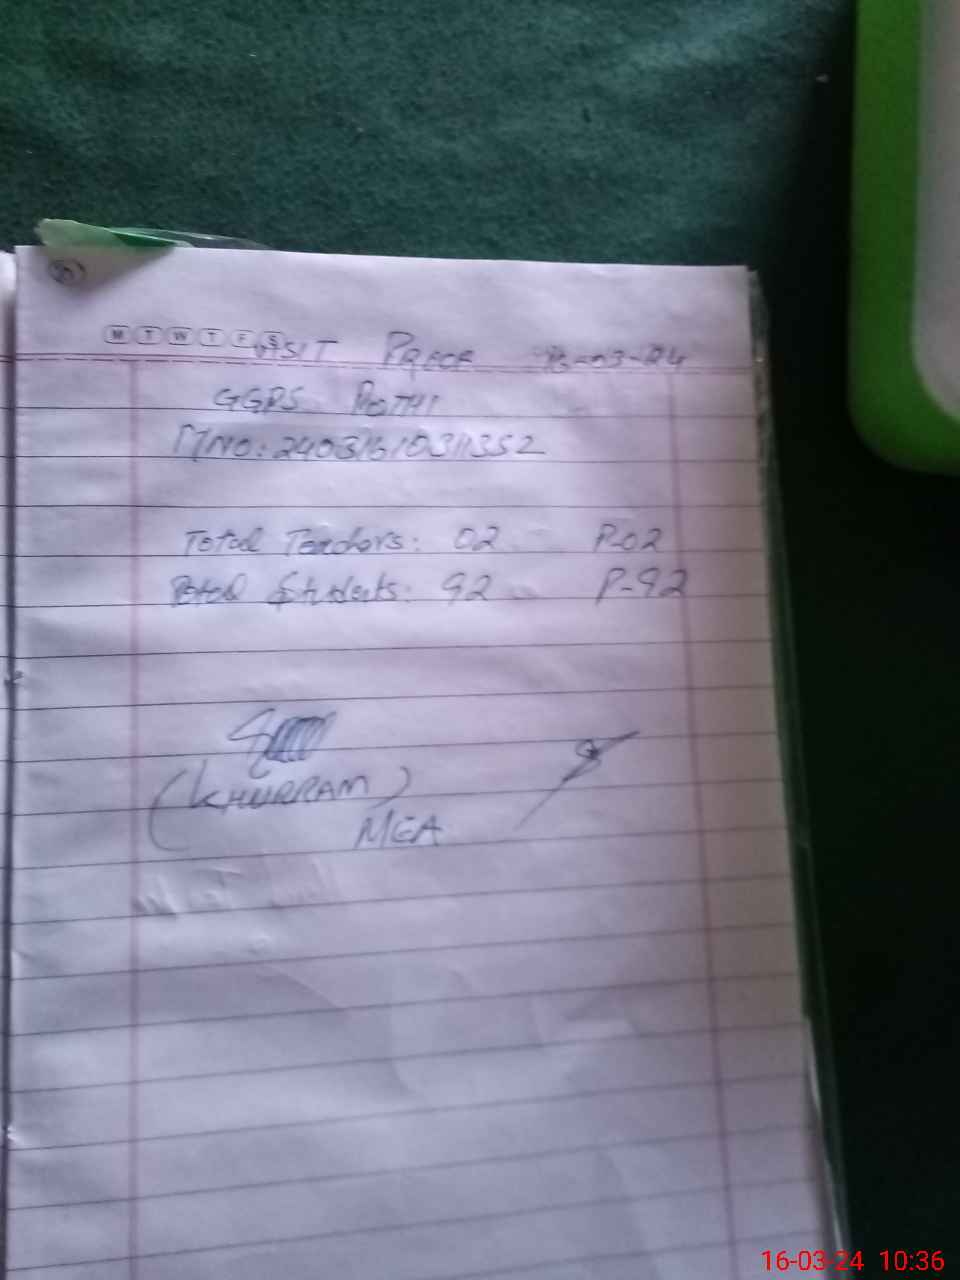 M T W T F S
VISIT PROOF 16-03-24
GGPS POTHI
MNO: 24031610311352
Total Teachers: 02 P-02
Total Students: 92 P-92
(KHURRAM)
MEA
16-03-24 10:36